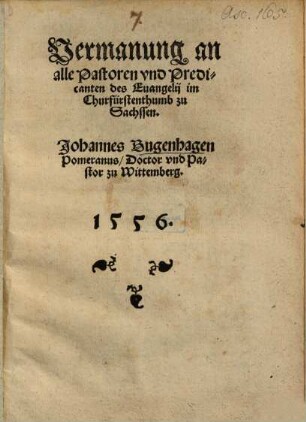 7.
Asc. 1605
Vermanung an
alle Pastoren vnd Predi⸗
canten des Euangelij im
Churfürstenthumb zu
Sachssen.
Johannes Bugenhagen
Pomeranus/ Doctor vnd Pa⸗
stor zu Wittemberg.
1 5 5 6.